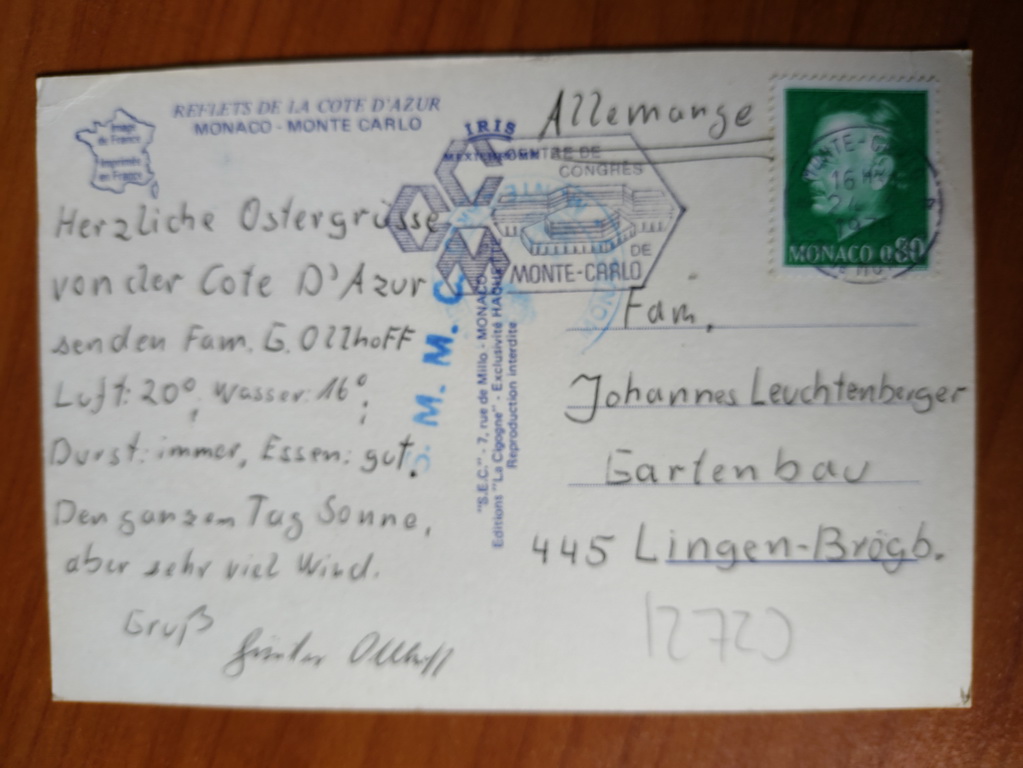 Image
de France
Imprimés
en France
REFLETS DE LA COTE D'AZUR
MONACO - MONTE CARLO
IRIS
MEXICHROME
Herzliche Ostergrüsse
von der Cote D'Azur
senden Fam. G. Ollhoff
Luft: 20°, Wasser: 16°,
Durst: immer, Essen: gut.
Den ganzen Tag Sonne,
aber sehr viel Wind.
Gruß
Günter Ollhoff
"S.E.C." - 7, rue de Millo - MONACO
Editions "La Cigogne" - Exclusivité
Reproduction interdite
M. M. C
CENTRE DE
CONGRÈS
DE
MONTE-CARLO
Allemange
MONACO 0.80
16
Fam.
Johannes Leuchtenberger
Gartenbau
445 Lingen-Brögb.
12720